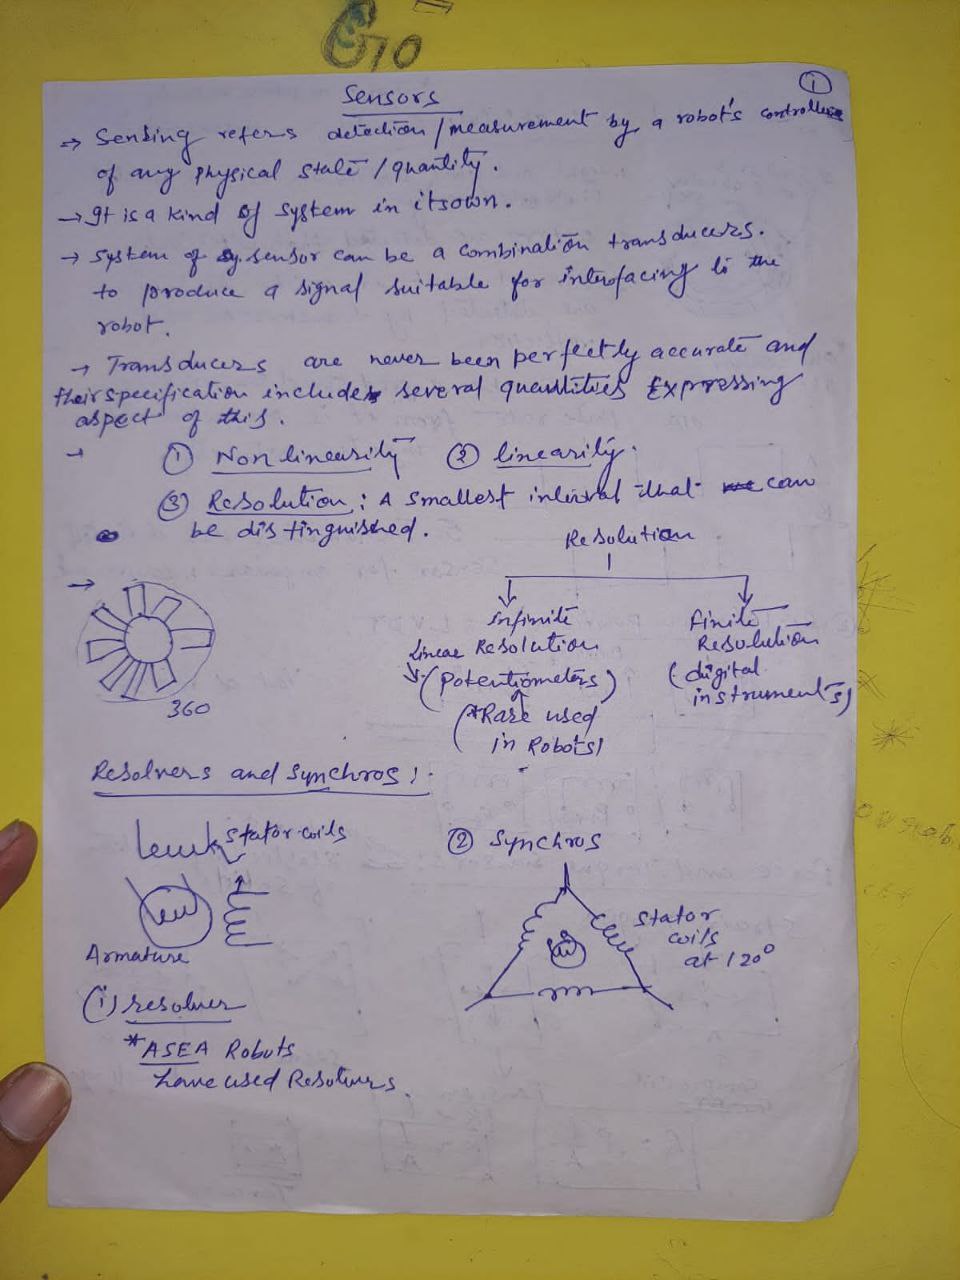 G10
①
Sensors
⇒ Sensing refers detection/measurement by a robot's controller
of any physical state/quantity.
→ It is a kind of system in itsown.
→ System of sensor can be a combination transducers.
to produce a signal suitable for interfacing to the
robot.
→ Transducers are never been perfectly accurate and
their specification includes several quantities Expressing
aspect of this.
→ ① Non linearity ② linearity.
③ Resolution: A smallest interval that can
be distinguished.
Resolution
→
infinite
Linear Resolution
(Potentiometers)
(*Rare used
in Robots)
finite
Resolution
(digital
instruments)
360
Resolvers and Synchros:-
stator coils
Armature
(i) resolver
*ASEA Robots
have used Resolvers.
② Synchros
stator
coils
at 120°